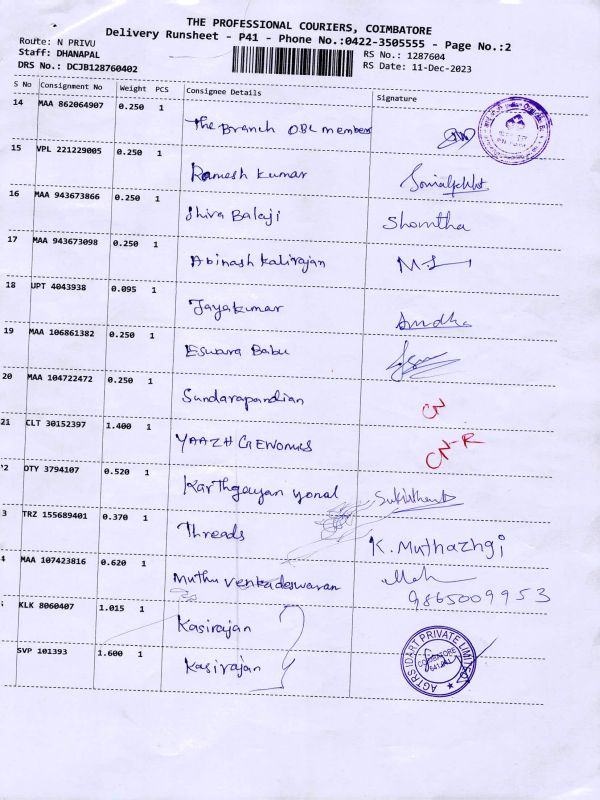 THE PROFESSIONAL COURIERS, COIMBATORE
Delivery Runsheet - P41 - Phone No.:0422-3505555 - Page No.:2
Route: N PRIVU
RS No.: 1287604
Staff: DHANAPAL
RS Date: 11-Dec-2023
DRS No.: DCJB128760402
S No Consignment No Weight PCS Consignee Details Signature
14 MAA 862064907 0.250 1
The Branch OBL members
15 VPL 221229005 0.250 1
Ramesh Kumar
16 MAA 943673866 0.250 1
Shiva Balaji Shomtha
17 MAA 943673098 0.250 1
Abinash Kalirajan
18 UPT 4043938 0.095 1
Jayakumar
19 MAA 106861382 0.250 1
Eswara Babu
20 MAA 104722472 0.250 1
Sundarapandian CN
21 CLT 30152397 1.400 1
YAAZH GENOMICS CN-R
2 DTY 3794107 0.520 1
Karthgeyan yonal
3 TRZ 155689401 0.370 1
Threads K. Muthazhgi
4 MAA 107423816 0.620 1
Muthu Venkadeswaran
9865009953
KLK 8060407 1.015 1
Kasirajan
SVP 101393 1.600 1
Kasirajan
AGTRSIDART PRIVATE LIMITED
COIMBATORE